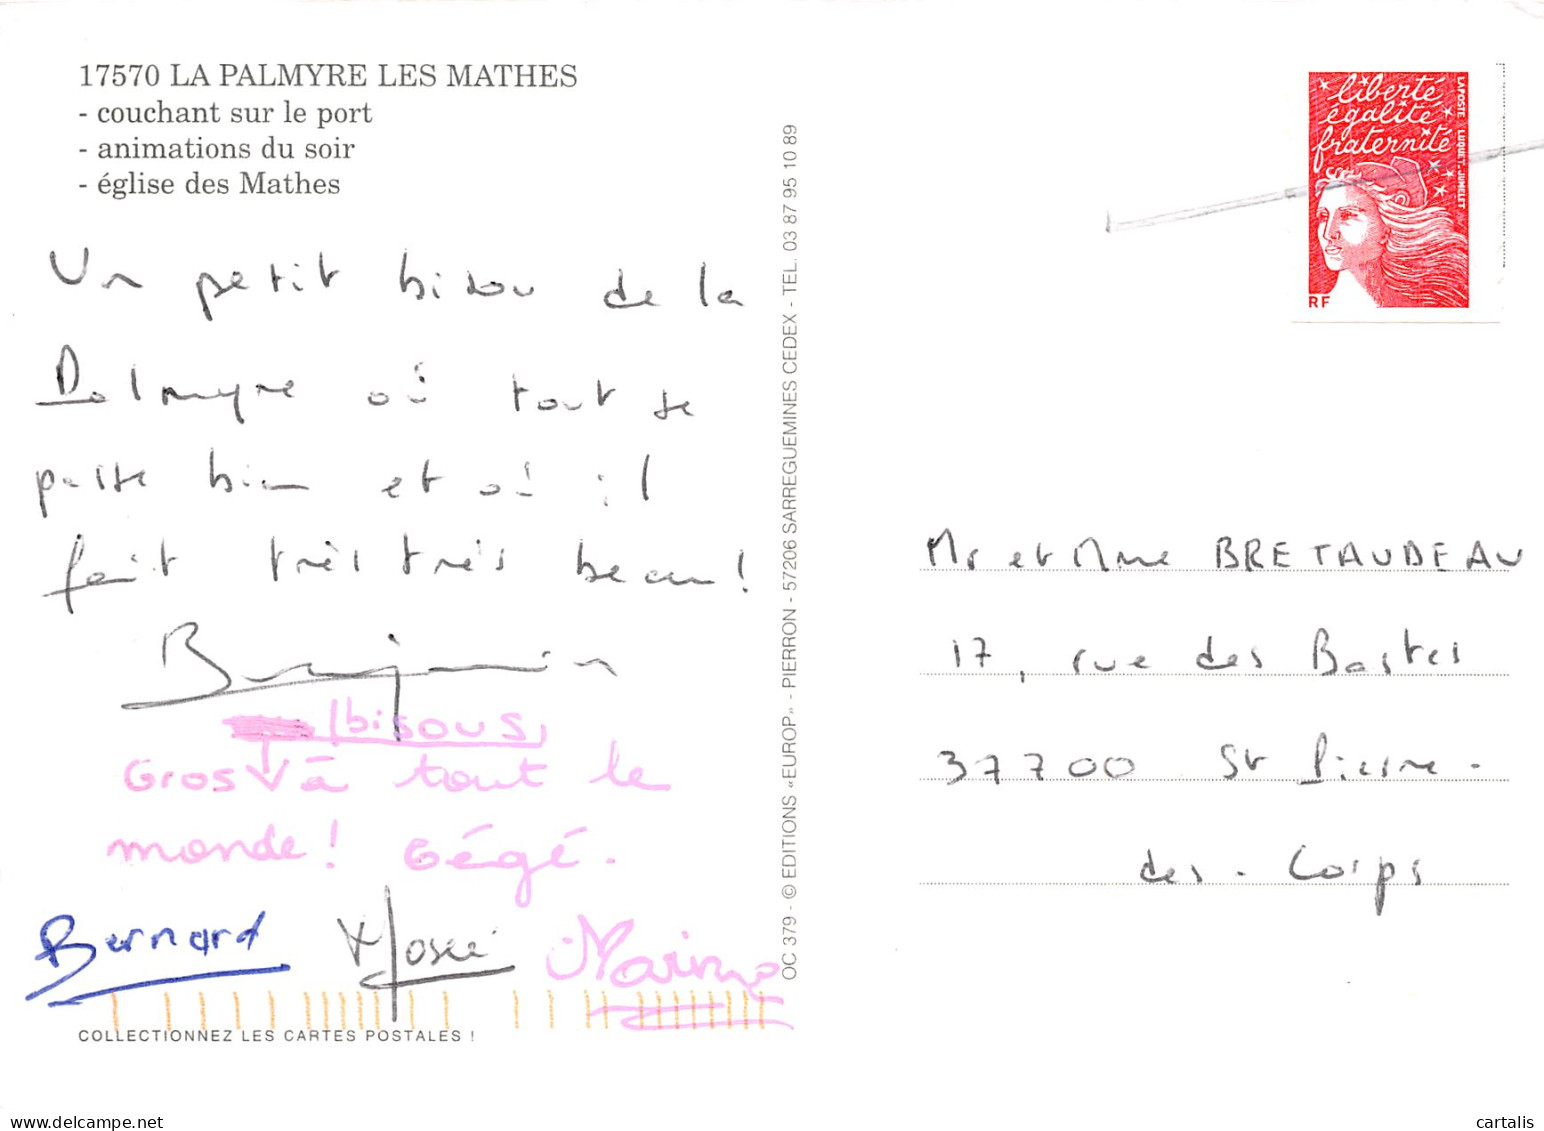 17570 LA PALMYRE LES MATHES
- couchant sur le port
- animations du soir
- église des Mathes
Un petit bisou de la
Palmyre où tout se
passe bien et où il
fait très très beau !
Benjamin
(bisous)
Gros à tout le
monde ! Gégé.
Bernard Josée Marine
COLLECTIONNEZ LES CARTES POSTALES !
OC 379 - © EDITIONS «EUROP» - PIERRON - 57206 SARREGUEMINES CEDEX - TEL. 03 87 95 10 89
liberté
égalité
fraternité
LA POSTE LUQUET-JUMELET
RF
Mr et Mme BRETAUDEAU
17, rue des Bastes
37700 St Pierre -
des - Corps
cartalis
delcampe.net